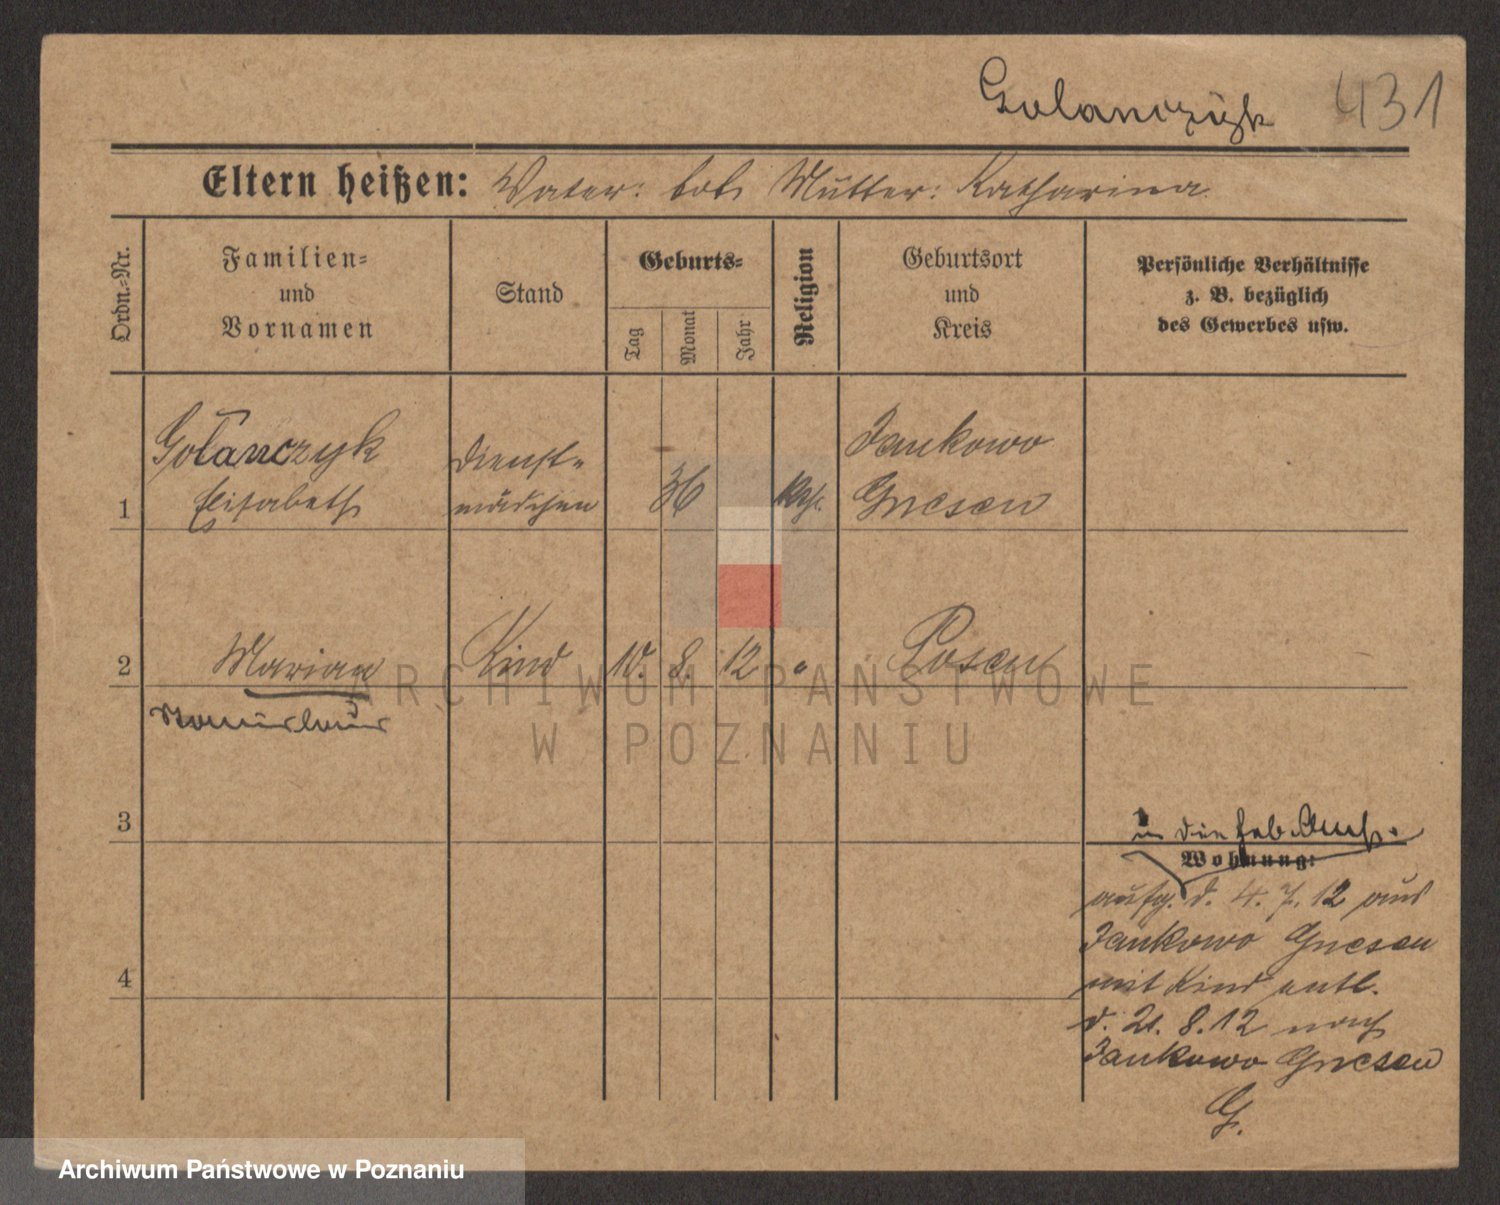 Golanczyk 431
Eltern heißen: Vater: Mutter: Katharina
Ordn.-Nr.
Familien-
und
Vornamen
Stand
Geburts-
Tag
Monat
Jahr
Religion
Geburtsort
und
Kreis
Persönliche Verhältnisse
z. B. bezüglich
des Gewerbes usw.
1
Golanczyk
Elisabeth
Dienst-
mädchen
36
Kth.
Jankowo
Gnesen
2
Marian
Kind
10. 8. 12
"
Posen
3
in die Heb. Anst.
Wohnung:
aufg. d. 4. 7. 12 aus
Jankowo Gnesen
mit Kind entl.
d. 21. 8. 12 nach
Jankowo Gnesen
G.
4
ARCHIWUM PAŃSTWOWE
W POZNANIU
Archiwum Państwowe w Poznaniu